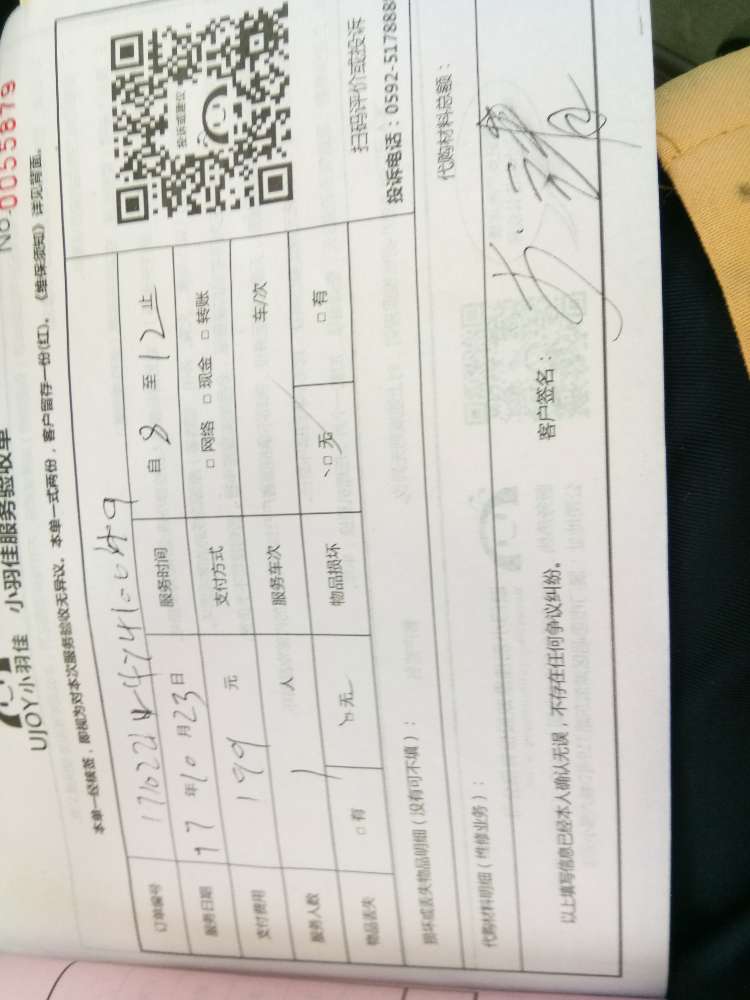 No.0055879
UJOY小羽佳 小羽佳服务验收单
本单一经核签，即视为对本次服务验收无异议。本单一式两份，客户留存一份(红)。《维保须知》详见背面。
订单编号
服务日期 17年10月23日 服务时间 自8至12止
支付费用 199元 支付方式 □网络 □现金 □转账
服务人数 1人 服务车次 车/次
物品丢失 □有 □无 物品损坏 □无 □有
投诉或建议
扫码评价或投诉
投诉电话：0592-517888
损坏或丢失物品明细（没有可不填）：
代购材料明细（维修业务）： 代购材料总额：
以上填写信息已经本人确认无误，不存在任何争议纠纷。 客户签名：